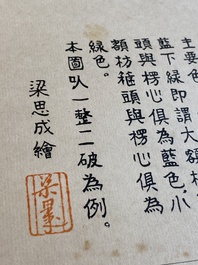 主要色
藍下綠即謂大額枋
頭與楞心俱為藍色，小
額枋箍頭與楞心俱為
綠色。
本圖以一整二破為例。
梁思成繪